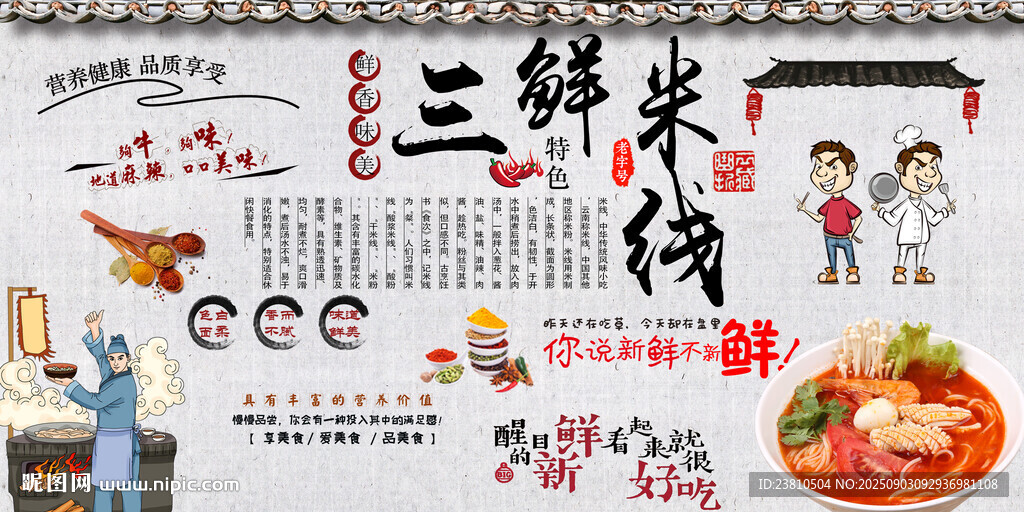 营养健康 品质享受
鲜香味美
三鲜米线
特色
老字号
够牛，够味！
地道麻辣，口口美味！
米线，中华传统风味小吃
，云南称米线，中国其他
地区称米粉，米线用米制
成，长条状，截面为圆形
，色洁白，有韧性，于开
水中稍煮后捞出，放入肉
汤中，一般拌入葱花、酱
油、盐、味精、油辣、肉
酱，趁热吃。粉丝与其类
似，但口感不同，古烹饪
书《食次》之中，记米线
为
粲
。人们习惯叫米
线。
酸浆米线、
、
酸粉
、
、
干米线
、
、
米粉
、其含有丰富的碳水化
合物、维生素、矿物质及
酵素等，具有熟透迅速、
均匀，耐煮不烂，爽口滑
嫩，煮后汤水不浊，易于
消化的特点，特别适合休
闲快餐食用
色白而柔
香而不腻
味道鲜美
昨天还在吃草，今天却在盘里
你说新鲜不新鲜！
具有丰富的营养价值
慢慢品尝，你会有一种投入其中的满足感！
【 享美食/ 爱美食 /品美食 】
醒目的新鲜
看起来就很好吃
昵图网 www.nipic.com
ID:23810504 NO:20250903092936981108